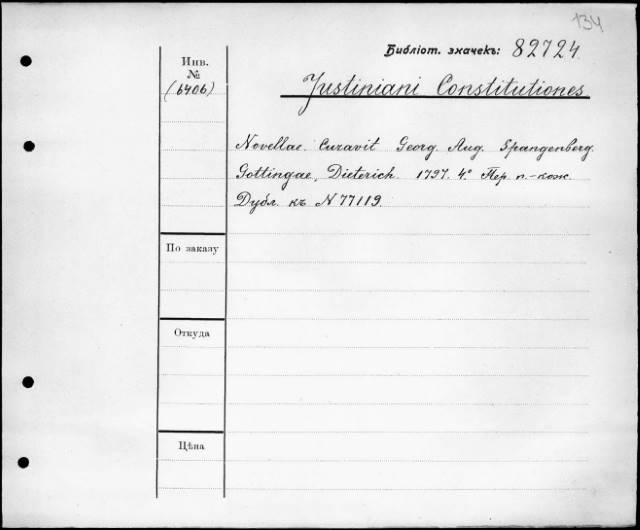 134
Библіот. значекъ: 82724.
Инв.
№
(6406)
Justiniani Constitutiones
Novellae. Curavit Georg. Aug. Spangenberg.
Gottingae, Dieterich. 1797. 4º Пер. п.-кож.
Дубл. къ N 77119.
По заказу
Откуда
Цѣна